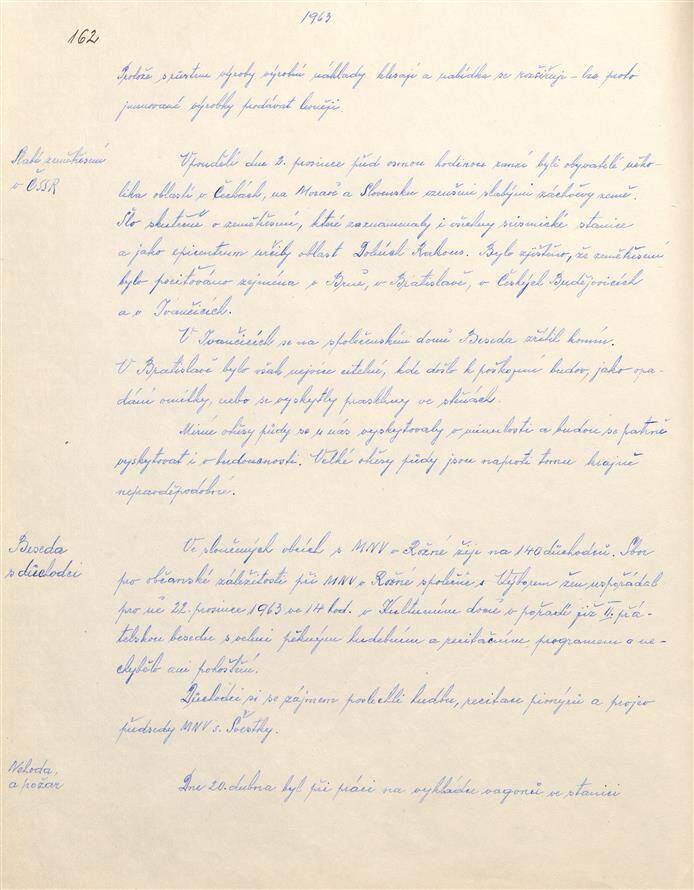 1963
162
Protože s růstem výroby výrobní náklady klesají a nabídka se rozšiřuje - lze proto
jmenované výrobky prodávat levněji.
Slabé zemětřesení
v ČSSR
V pondělí dne 2. prosince před osmou hodinou ranní byli obyvatelé něko-
lika oblastí v Čechách, na Moravě a Slovensku vzrušeni slabými záchvěvy země.
Šlo skutečně o zemětřesení, které zaznamenaly i všechny seismické stanice
a jako epicentrum určily oblast Dolních Rakous. Bylo zjištěno, že zemětřesení
bylo pociťováno zejména v Brně, v Bratislavě, v Českých Budějovicích
a v Ivančicích.
V Ivančicích se na společenském domě Beseda zřítil komín.
V Bratislavě bylo však nejvíce citelné, kde došlo k poškození budov, jako opa-
dání omítky, nebo se vyskytly praskliny ve stěnách.
Mírné otřesy půdy se u nás vyskytovaly v minulosti a budou se patrně
vyskytovat i v budoucnosti. Velké otřesy půdy jsou naproti tomu krajně
nepravděpodobné.
Beseda
s důchodci
Ve sloučených obcích s MNV v Rožné žije na 140 důchodců. Sbor
pro občanské záležitosti při MNV v Rožné společně s Výborem žen uspořádal
pro ně 22. prosince 1963 ve 14 hod. v Kulturním domě v pořadí již II. přá-
telskou besedu s velmi pěkným hudebním a recitačním programem a ne-
chybělo ani pohoštění.
Důchodci si se zájmem poslechli hudbu, recitace pionýrů a projev
předsedy MNV s. Švestky.
Nehoda,
a požár
Dne 20. dubna byl při práci na vykládce vagonů ve stanici